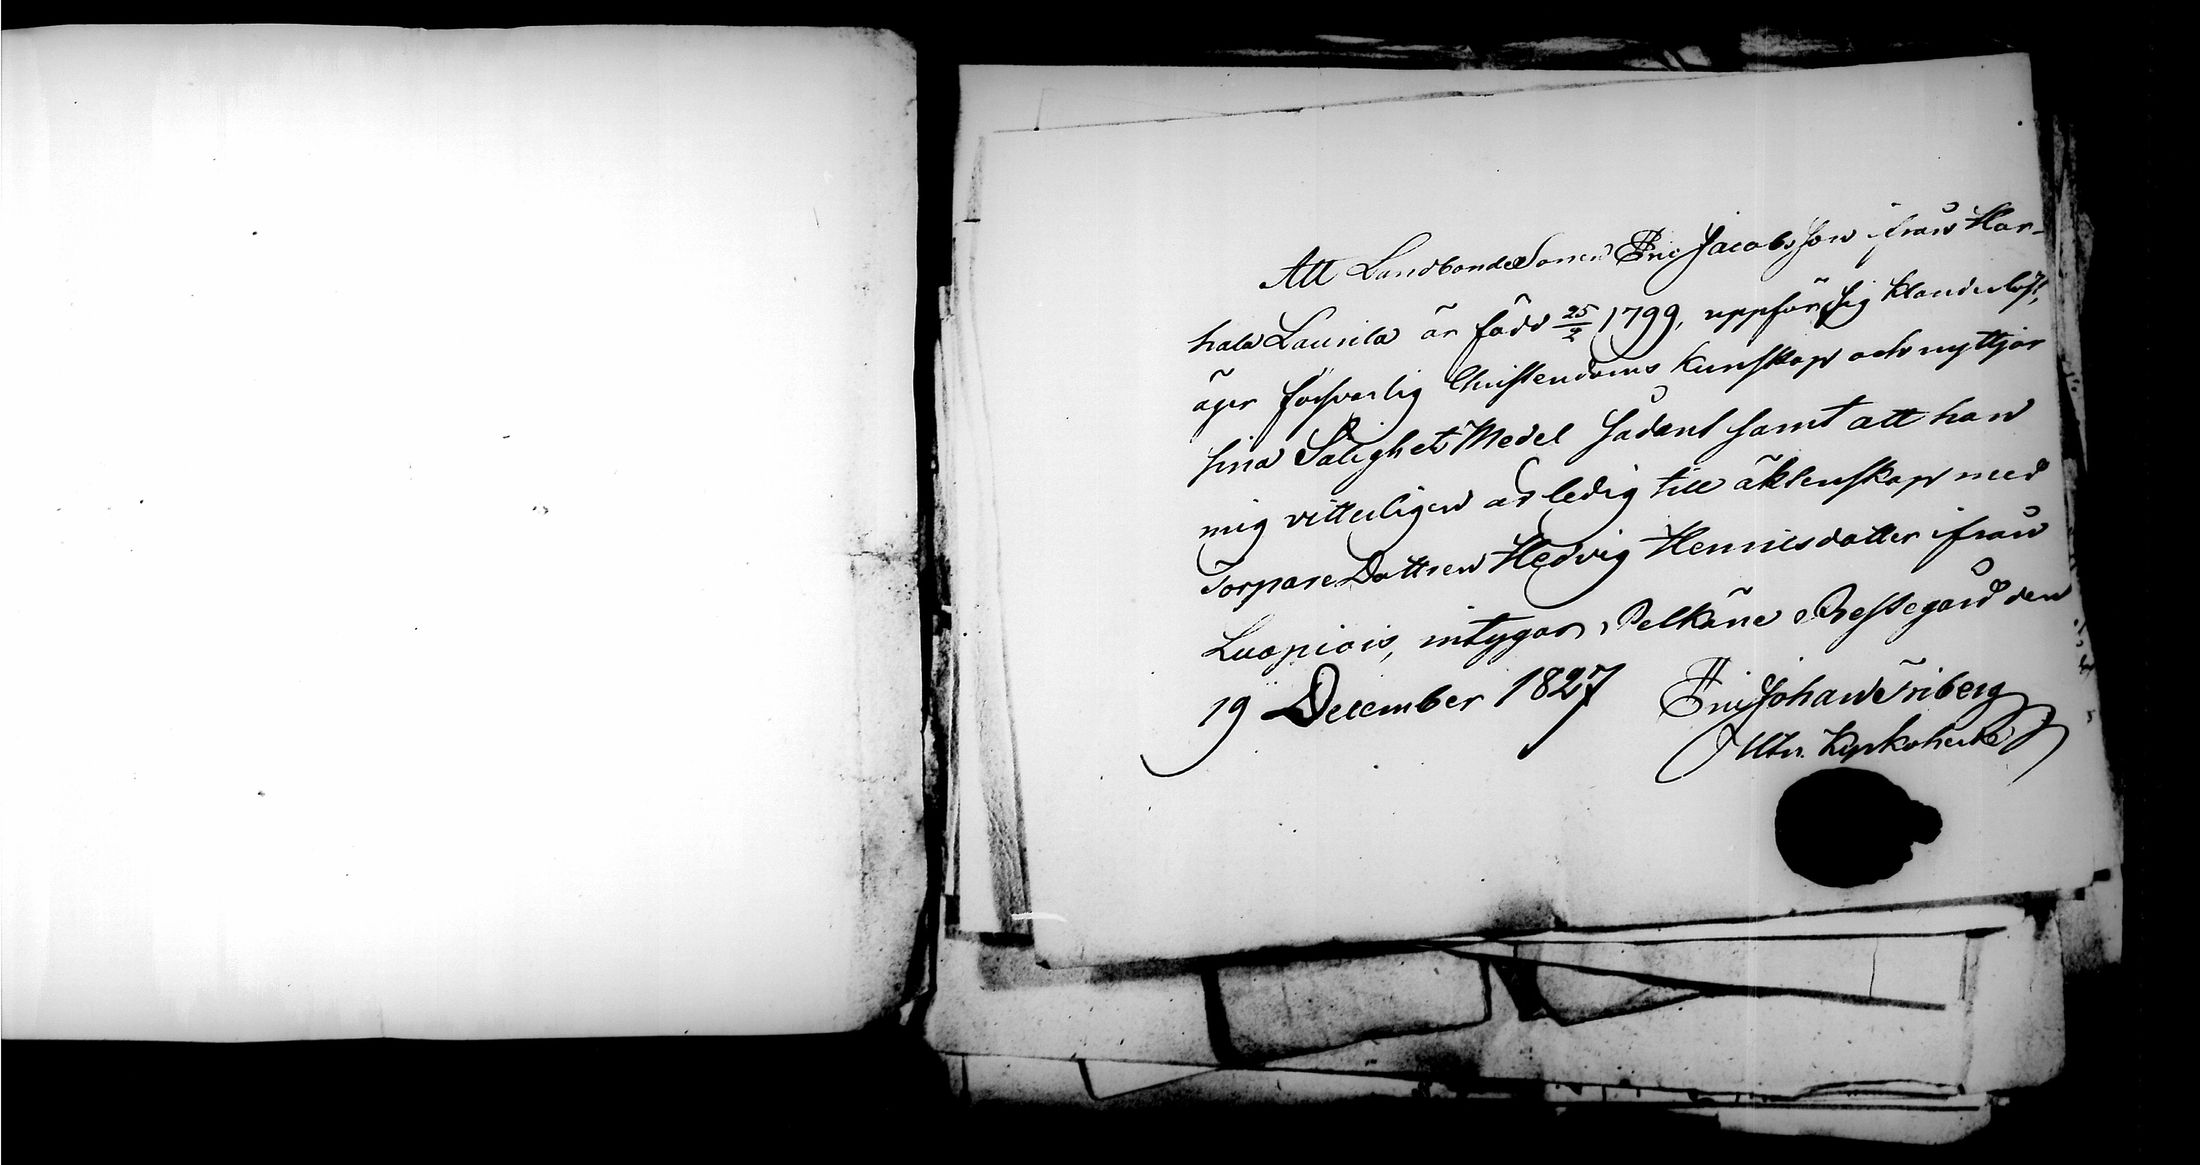 Att LandbondeSonen Eric Jacobsson ifrån Har-
hala Laurila är född 25/2 1799, uppför sig klanderlöst,
äger försvarlig Christendoms kunskap och nyttjar
sina Salighets Medel sådant samt att han
mig vitterligen är ledig till äktenskap med
TorpareDottren Hedvig Henricsdotter ifrån
Luopiois, intygar, Pelkäne Prestegård den
19 December 1827 Eric Johan Friberg